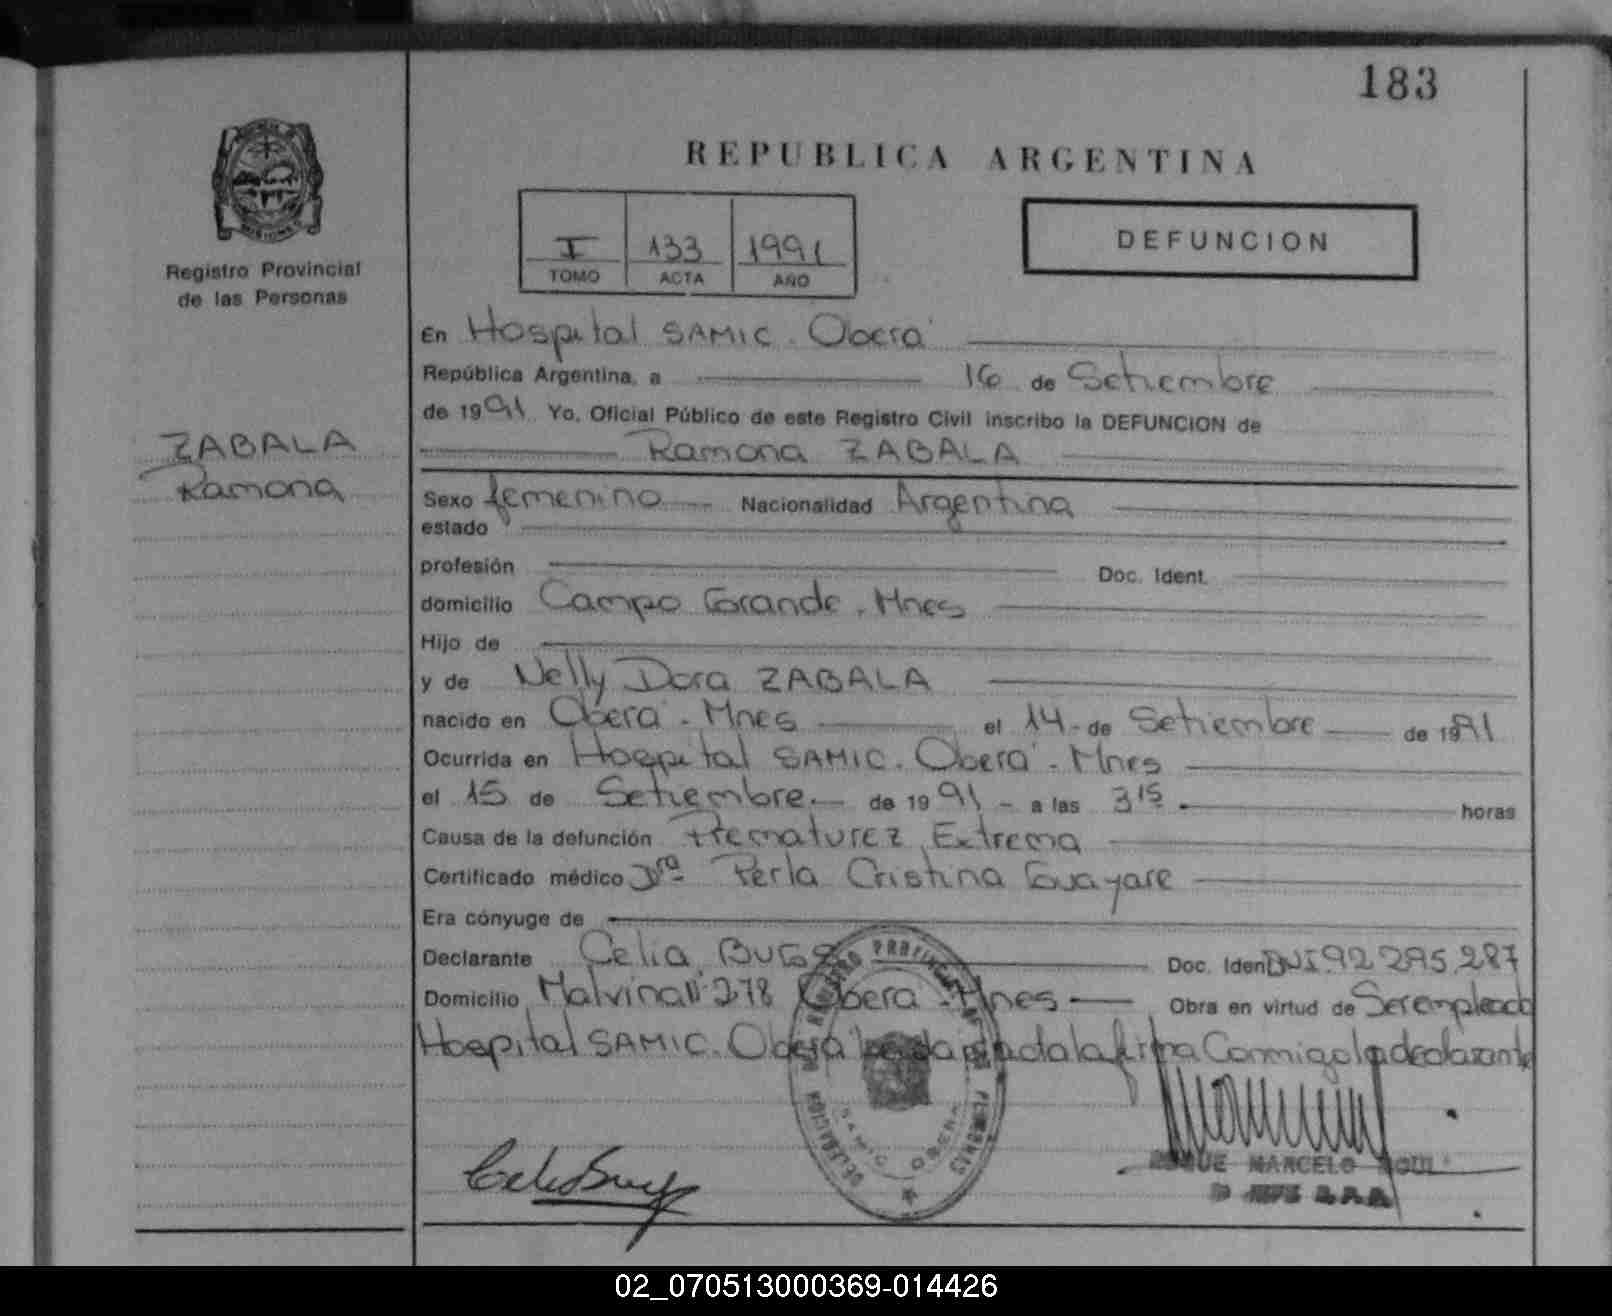 183
REPUBLICA ARGENTINA
MISIONES
Registro Provincial
de las Personas
I 133 1991
TOMO ACTA AÑO
DEFUNCION
ZABALA
Ramona
En Hospital SAMIC. Oberá
República Argentina, a 16 de Setiembre
de 1991 Yo, Oficial Público de este Registro Civil inscribo la DEFUNCION de
Ramona ZABALA
Sexo femenino Nacionalidad Argentina
estado
profesión Doc. Ident.
domicilio Campo Grande. Mnes
Hijo de
y de Nelly Dora ZABALA
nacido en Oberá - Mnes el 14 - de Setiembre de 1991
Ocurrida en Hospital SAMIC. Oberá - Mnes
el 15 de Setiembre. de 1991 - a las 3 15 . horas
Causa de la defunción Prematurez Extrema
Certificado médico Dra Perla Cristina Guayare
Era cónyuge de
Declarante Celia Doc. Iden DNI 92 295 287
Domicilio Malvina 278 Oberá - Mnes Obra en virtud de Ser empleado
Hospital SAMIC. Oberá la firma Conmigo la declarante
DELEGACION REGISTRO PROVINCIAL DE LAS PERSONAS
SAMIC OBERA
MARCELO
02_070513000369-014426